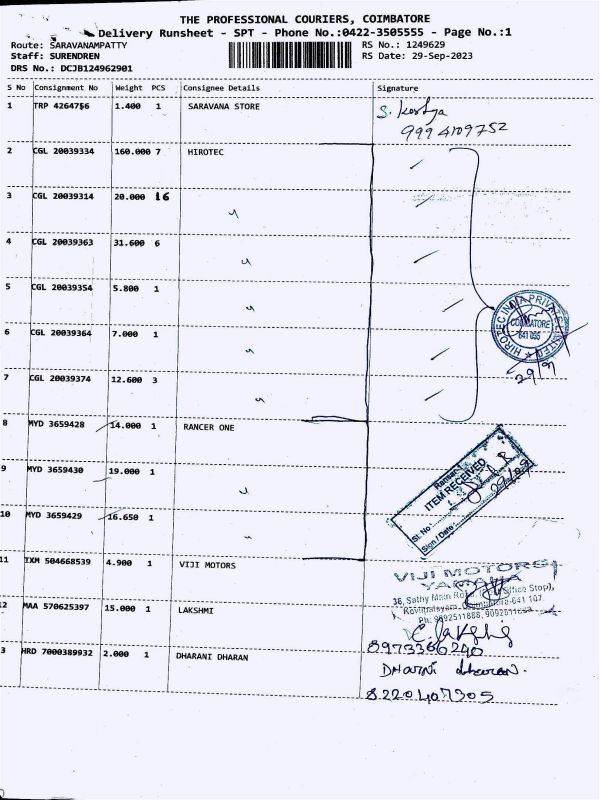 THE PROFESSIONAL COURIERS, COIMBATORE
Delivery Runsheet - SPT - Phone No.:0422-3505555 - Page No.:1
Route: SARAVANAMPATTY
RS No.: 1249629
Staff: SURENDREN
RS Date: 29-Sep-2023
DRS No.: DCJB124962901
S No Consignment No Weight PCS Consignee Details Signature
1 TRP 4264756 1.400 1 SARAVANA STORE
9994109752
2 CGL 20039334 160.000 7 HIROTEC
3 CGL 20039314 20.000 16 "
4 CGL 20039363 31.600 6 "
5 CGL 20039354 5.800 1 "
6 CGL 20039364 7.000 1 "
HIROTEC INDIA PRIVATE LIMITED
COIMBATORE
641 035
29/9
7 CGL 20039374 12.600 3 "
8 MYD 3659428 14.000 1 RANCER ONE
9 MYD 3659430 19.000 1 "
ITEM RECEIVED
Sl. No
Sign / Date
29/09
10 MYD 3659429 16.650 1 "
11 IXM 504668539 4.900 1 VIJI MOTORS
VIJI MOTORS
YAMAHA
36, Sathy Main Road, Office Stop),
Kovilpalayam, Coimbatore-641 107.
12 MAA 570625397 15.000 1 LAKSHMI
Ph: 9092511888,
8973366240
3 HRD 7000389932 2.000 1 DHARANI DHARAN
Dharni dharan.
8220407305